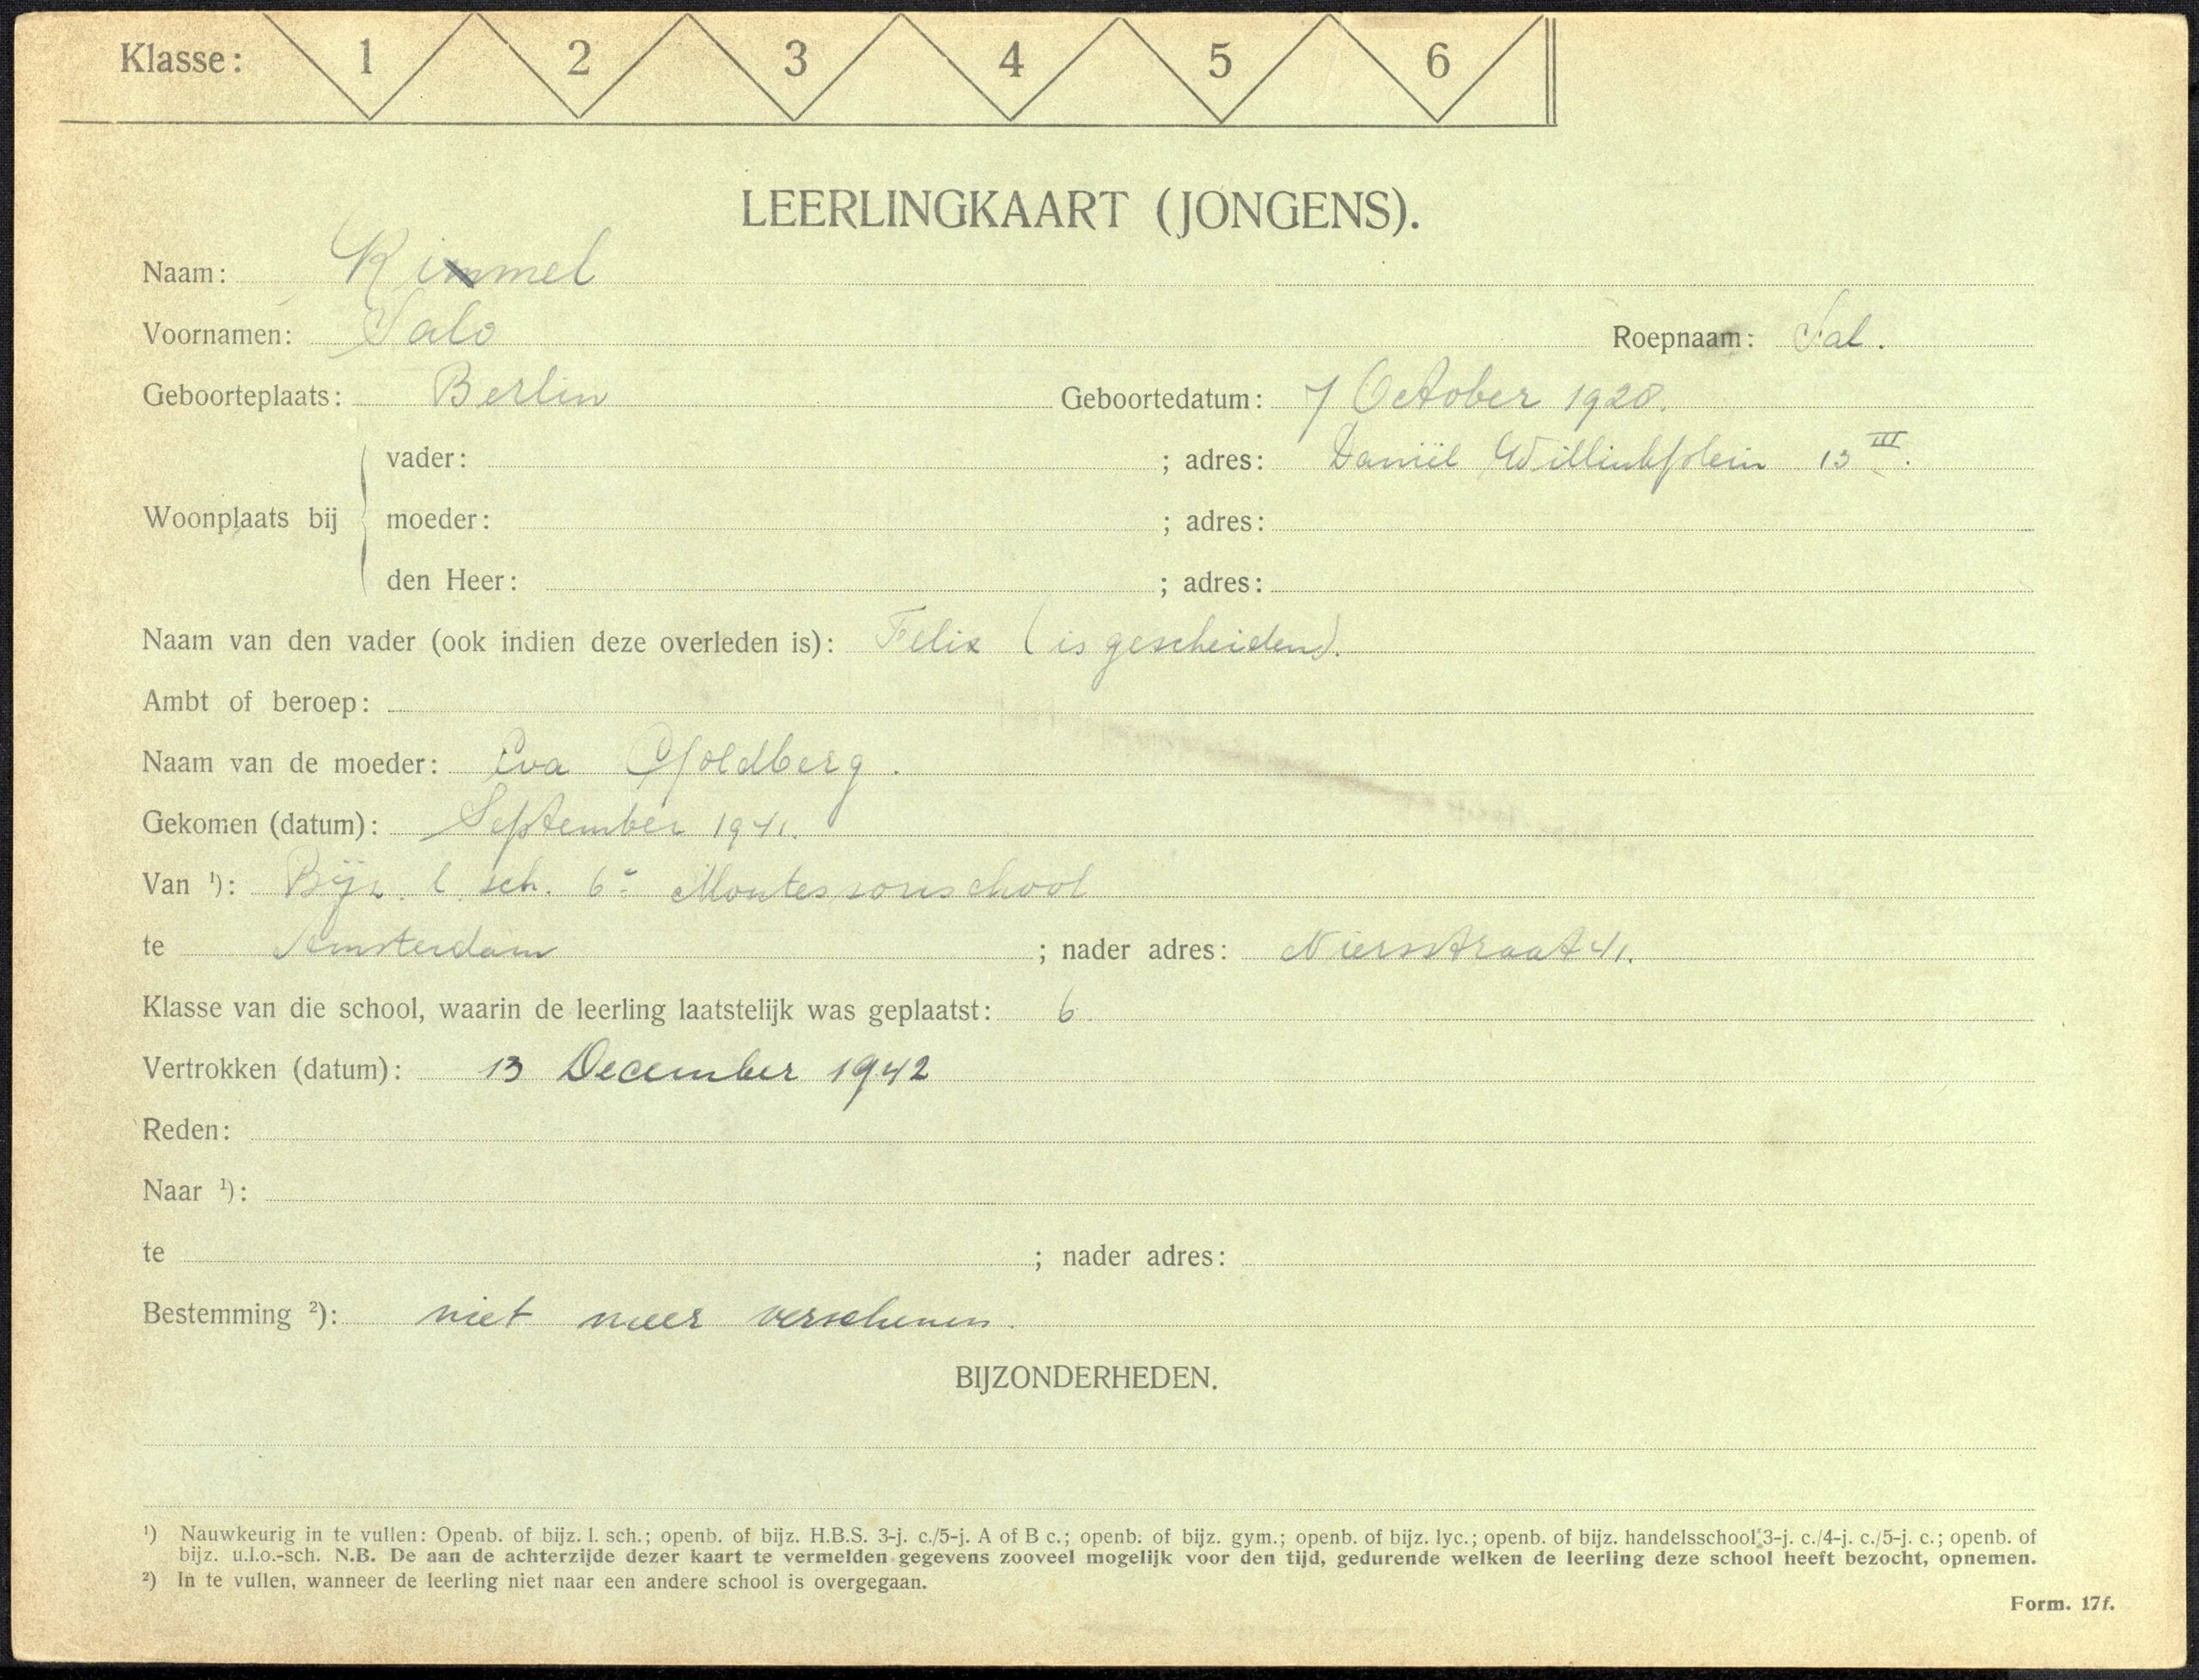 Klasse: 1 2 3 4 5 6
LEERLINGKAART (JONGENS).
Naam: Kimmel
Voornamen: Salo Roepnaam: Sal.
Geboorteplaats: Berlin Geboortedatum: 7 October 1928.
vader: ; adres: Daniël Willinkplein 13 III.
Woonplaats bij moeder: ; adres:
den Heer: ; adres:
Naam van den vader (ook indien deze overleden is): Felix (is gescheiden).
Ambt of beroep:
Naam van de moeder: Eva Goldberg.
Gekomen (datum): September 1941.
Van ¹): Bijz. l. sch. 6e Montessorischool
te Amsterdam ; nader adres: Niersstraat 41.
Klasse van die school, waarin de leerling laatstelijk was geplaatst: 6.
Vertrokken (datum): 13 December 1942
Reden:
Naar ¹):
te ; nader adres:
Bestemming ²): niet meer verschenen.
BIJZONDERHEDEN.
¹) Nauwkeurig in te vullen: Openb. of bijz. l. sch.; openb. of bijz. H.B.S. 3-j. c./5-j. A of B c.; openb. of bijz. gym.; openb. of bijz. lyc.; openb. of bijz. handelsschool 3-j. c./4-j. c./5-j. c.; openb. of
bijz. u.l.o.-sch. N.B. De aan de achterzijde dezer kaart te vermelden gegevens zooveel mogelijk voor den tijd, gedurende welken de leerling deze school heeft bezocht, opnemen.
²) In te vullen, wanneer de leerling niet naar een andere school is overgegaan.
Form. 17f.